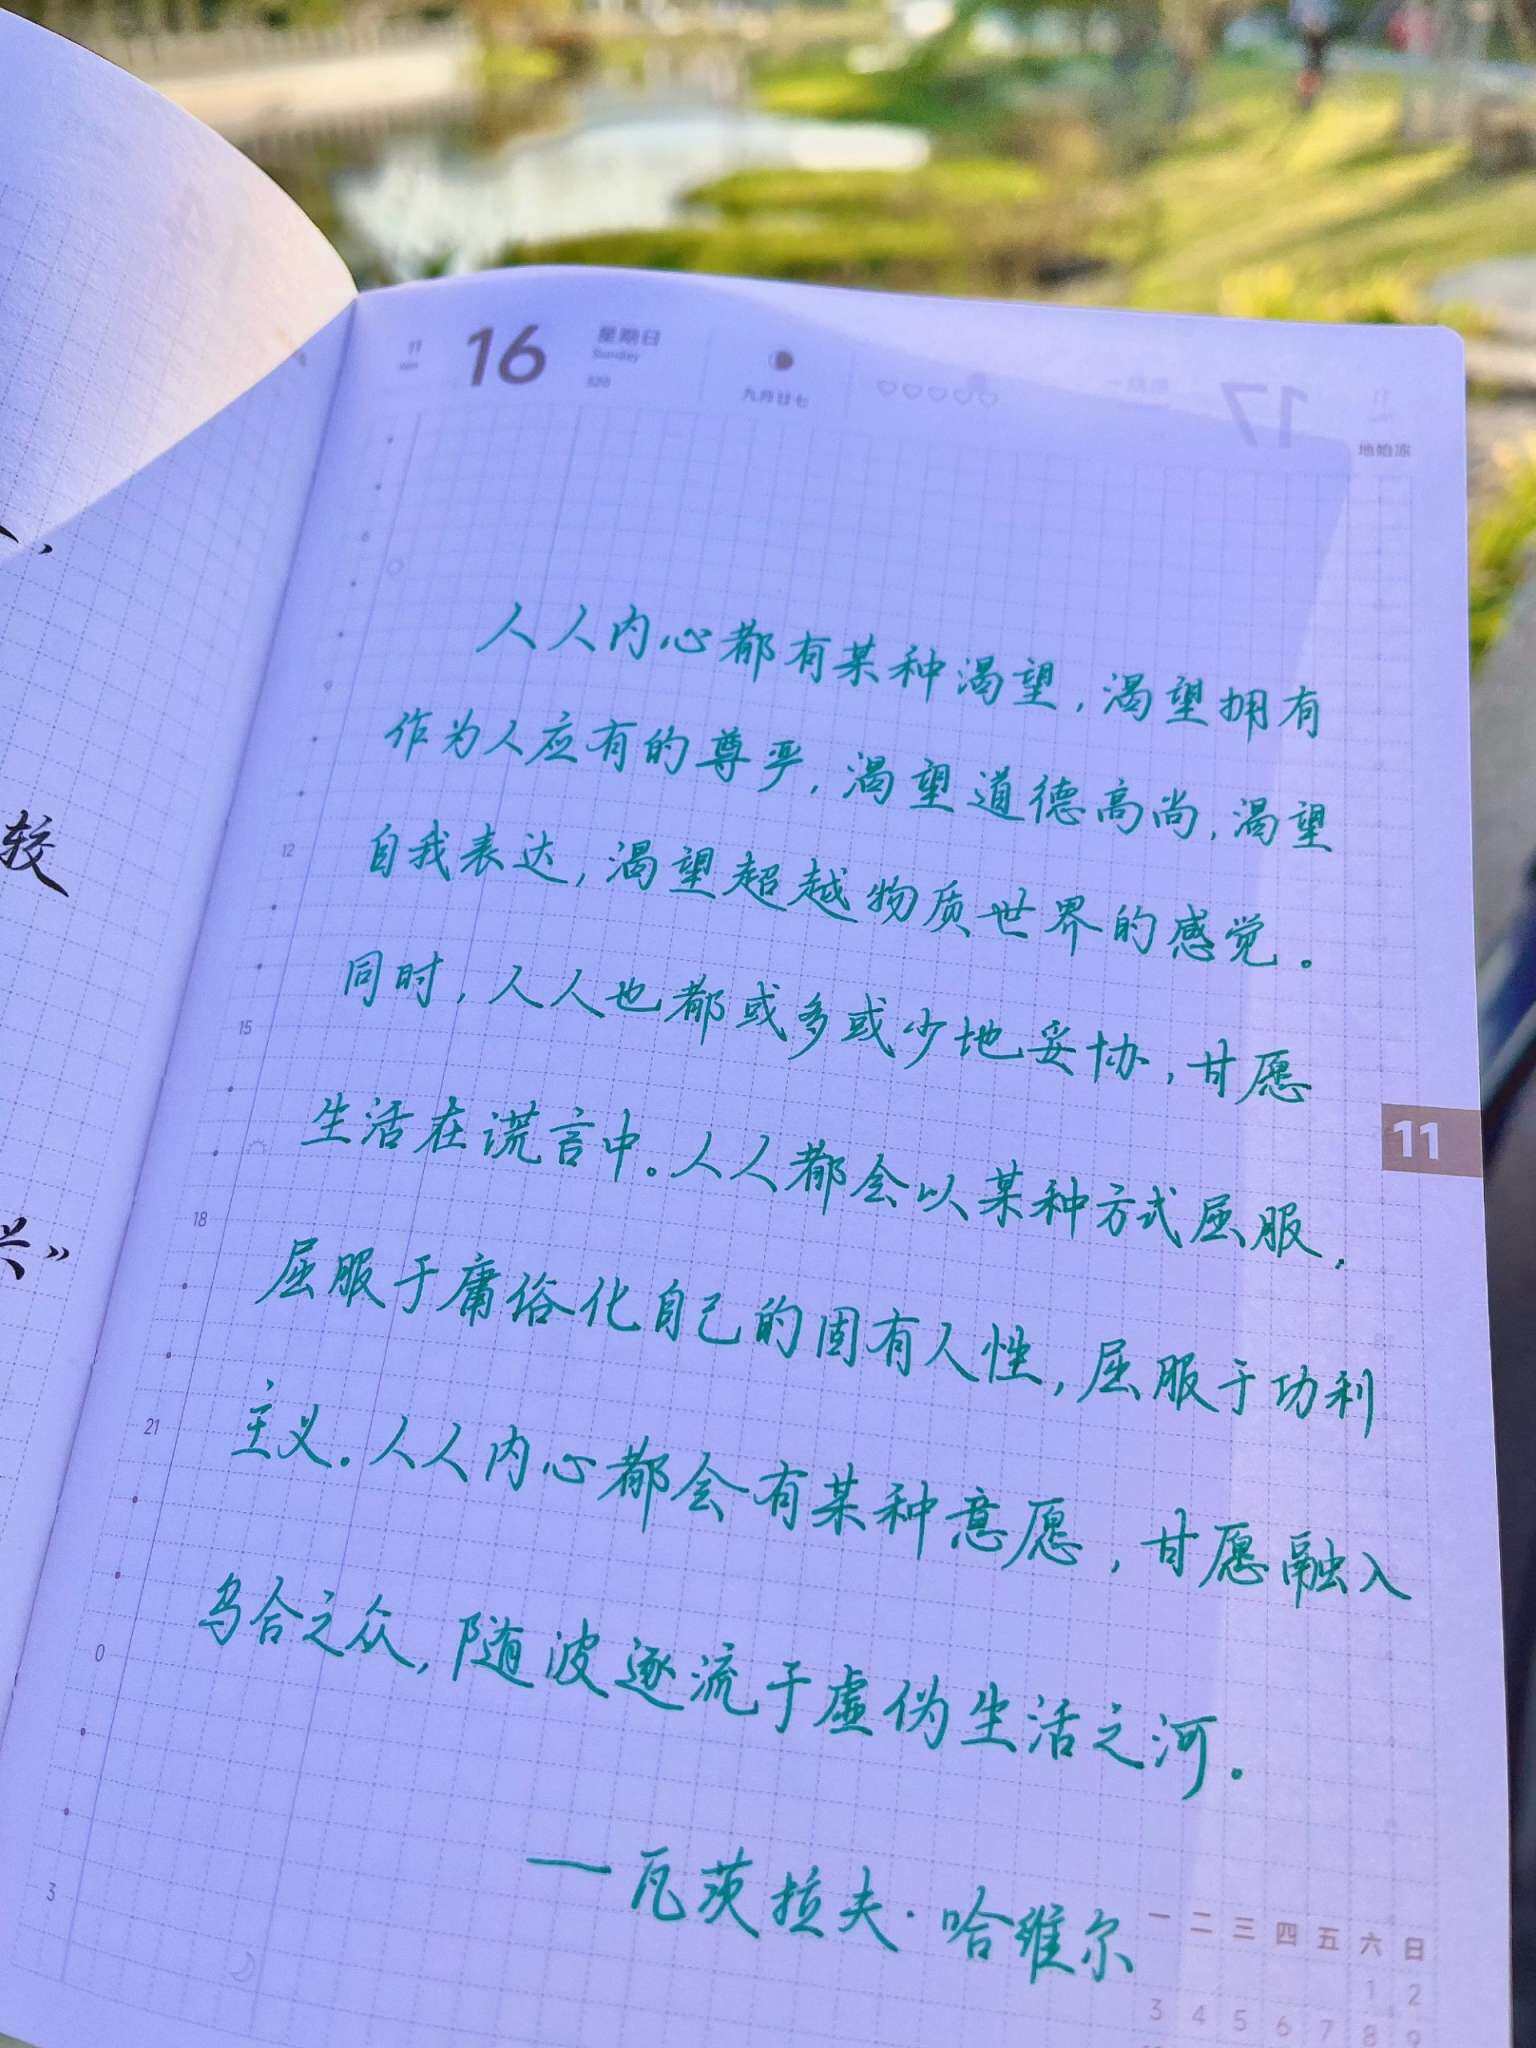 11
16
星期日
Sunday
320
九月廿七
17
地始冻
人人内心都有某种渴望，渴望拥有
作为人应有的尊严，渴望道德高尚，渴望
自我表达，渴望超越物质世界的感觉。
同时，人人也都或多或少地妥协，甘愿
生活在谎言中。人人都会以某种方式屈服，
屈服于庸俗化自己的固有人性，屈服于功利
主义。人人内心都会有某种意愿，甘愿融入
乌合之众，随波逐流于虚伪生活之河。
——瓦茨拉夫·哈维尔
较
兴”
6
9
12
15
18
21
0
3
11
一 二 三 四 五 六 日
1 2
3 4 5 6 7 8 9